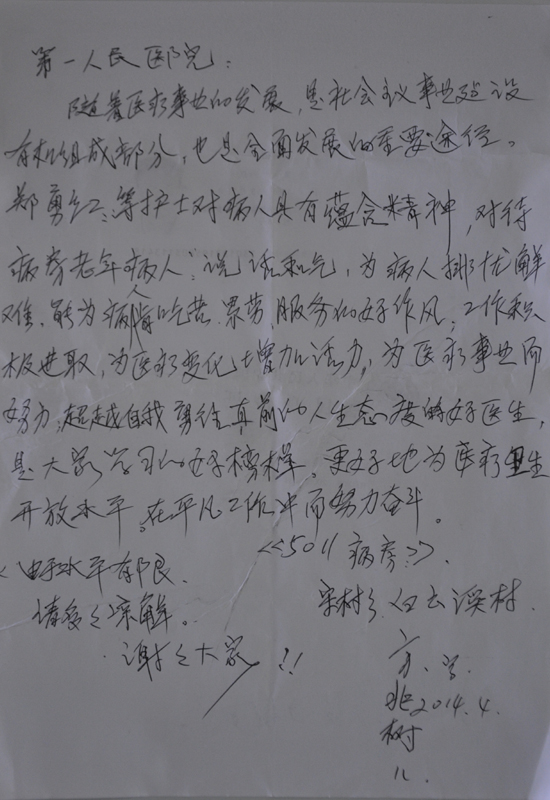 第一人民医院：
随着医疗事业的发展，是社会主义事业建设
有机组成部分，也是全面发展的重要途径。
郑勇红等护士对病人具有蕴含精神，对待
病房老年病人：说话和气，为病人排忧解
难。能为病人吃苦累劳，服务的好作风，工作积
极进取，为医疗变化增加活力，为医疗事业而
努力，超越自我勇往直前的人生态度的好医生，
是大家学习的好榜样。更好地为医疗卫生
开放水平，在平凡工作中而努力奋斗。
<<5011病房>>.
由于水平有限.
请多多谅解。
谢谢大家!!
宋村乡白云溪村.
2014.4.
树